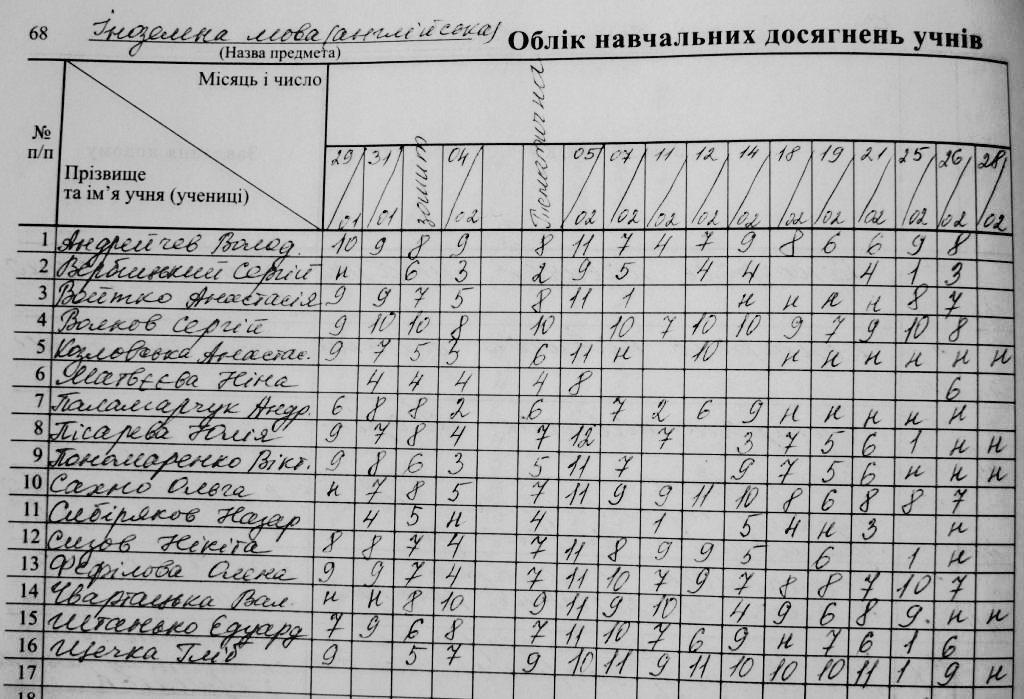 68 Іноземна мова (англійська) Облік навчальних досягнень учнів
(Назва предмета)
Місяць і число
№ п/п
Прізвище та ім’я учня (учениці)
29/01 31/01 зошит 04/02 Тематична 05/02 07/02 11/02 12/02 14/02 18/02 19/02 21/02 25/02 26/02 28/02
1 Андрейчев Волод. 10 9 8 9 8 11 7 4 7 9 8 6 6 9 8
2 Вербицький Сергій н 6 3 2 9 5 4 4 4 1 3
3 Войтко Анастасія 9 9 7 5 8 11 1 н н н н 8 7
4 Волков Сергій 9 10 10 8 10 10 7 10 10 9 7 9 10 8
5 Козловська Анастас. 9 7 5 3 6 11 н 10 н н н н н н
6 Матвєєва Ніна 4 4 4 4 8 6
7 Паламарчук Андр. 6 8 8 2 6 7 2 6 9 н н н н н
8 Пісарева Юлія 9 7 8 4 7 12 7 3 7 5 6 1 н н
9 Пономаренко Вікт. 9 8 6 3 5 11 7 9 7 5 6 н н н
10 Сахно Ольга н 7 8 5 7 11 9 9 11 10 8 6 8 8 7
11 Сибіряков Назар 4 5 н 4 1 5 4 н 3 н
12 Сизов Нікіта 8 8 7 4 7 11 8 9 9 5 6 1 н
13 Фефілова Олена 9 9 7 4 7 11 10 7 9 7 8 8 7 10 7
14 Чвартацька Вал. н н 8 10 9 11 9 10 4 9 6 8 9 н н
15 Штанько Едуард 7 9 6 8 7 11 10 7 6 9 н 7 6 1 6
16 Щечка Гліб 9 5 7 9 10 11 9 11 10 10 10 11 1 9 н
17
18